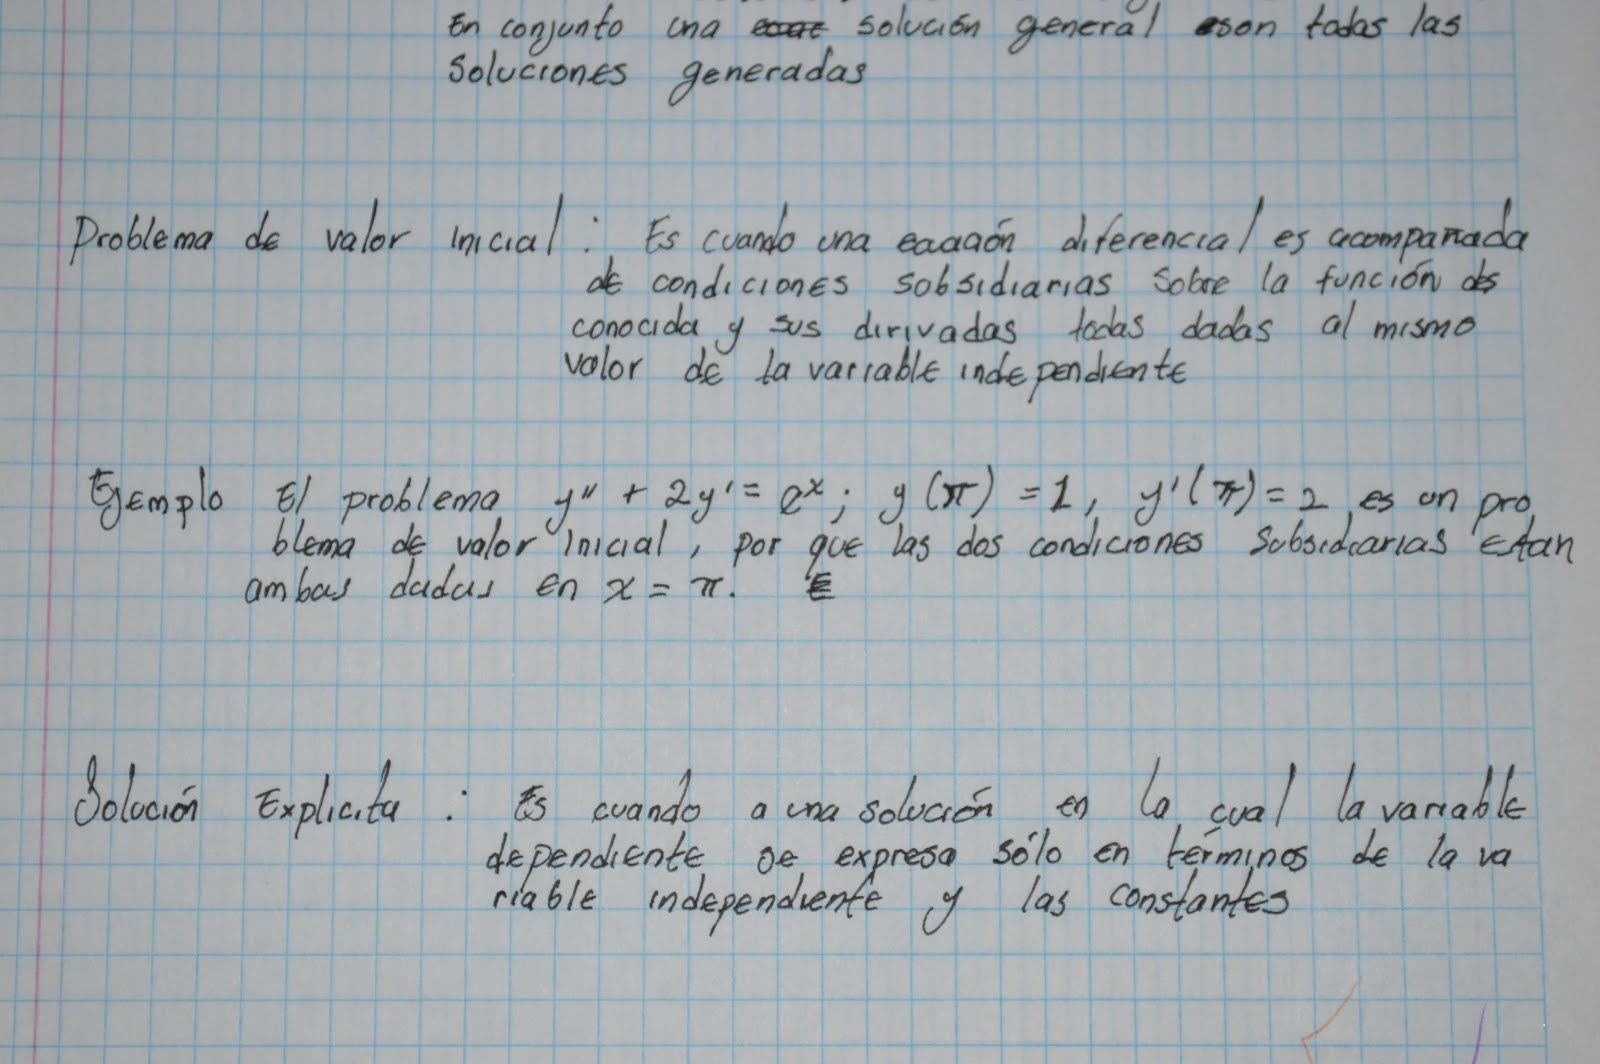 En conjunto una solución general son todas las
soluciones generadas
Problema de valor inicial : Es cuando una ecuación diferencial es acompañada
de condiciones subsidiarias sobre la función des
conocida y sus dirivadas todas dadas al mismo
valor de la variable independiente
Ejemplo El problema y'' + 2y' = e^x ; y(π) = 1, y'(π) = 2 es un pro
blema de valor inicial, por que las dos condiciones subsidiarias estan
ambas dadas en x = π.
Solución Explicita : Es cuando a una solución en la cual la variable
dependiente se expresa sólo en términos de la va
riable independiente y las constantes